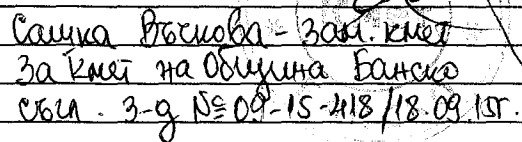 Сашка Въчкова - зам. кмет
За Кмет на Община Банско
съгл. З-д № 09-15-418/18.09.15г.